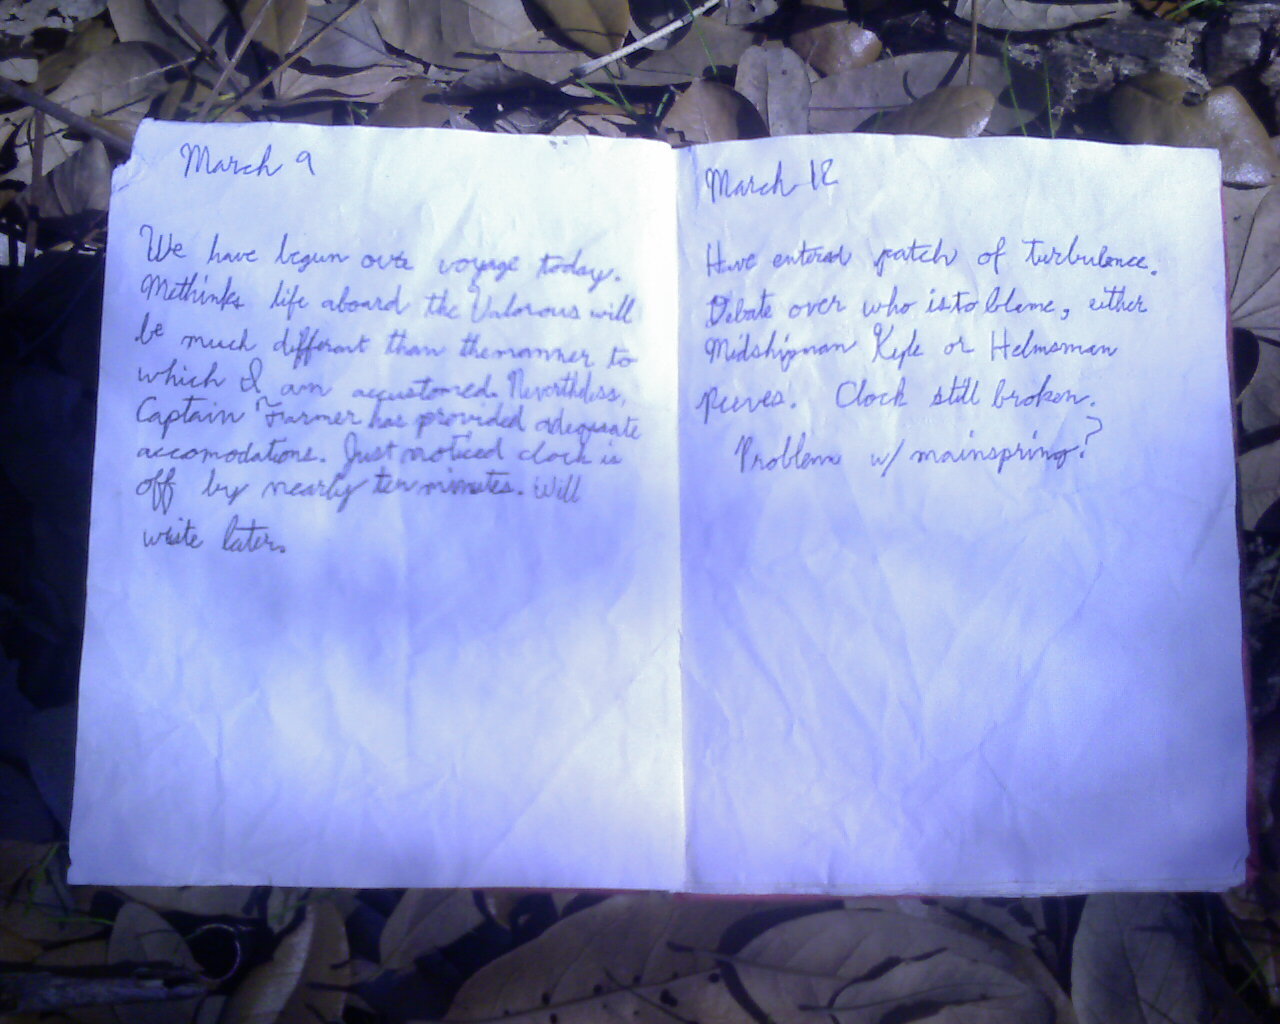 March 9
We have begun our voyage today.
Methinks life aboard the Valorous will
be much different than the manner to
which I am accustomed. Nevertheless,
Captain Farmer has provided adequate
accomodations. Just noticed clock is
off by nearly ten minutes. Will
write later.
March 12
Have entered patch of turbulence.
Debate over who is to blame, either
Midshipman Kyle or Helmsman
Reeves. Clock still broken.
Problem w/ mainspring?